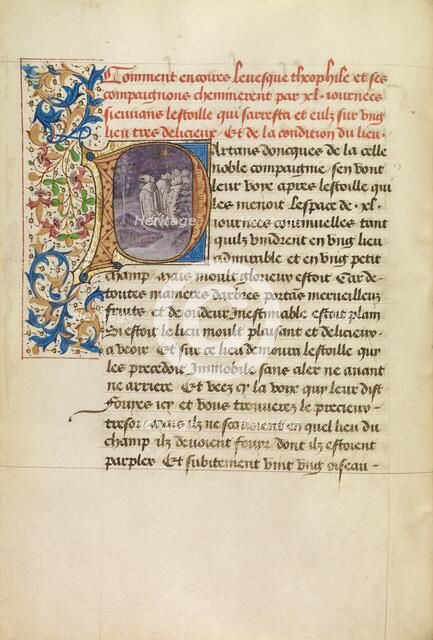 Comment encores levesque theophile et ses
compaignons cheminerent par xl. iournees
sieuvans lestoille qui sarresta et eulz sur vng
lieu tres delicieux Et de la condition du lieu.
Partans doncques de la celle
noble compaignie sen vont
leur voye apres lestoille qui
les menoit lespace de .xl.
iournees continuelles tant
quilz vindrent en vng lieu
admirable et en vng petit
champ mais moult glorieux estoit Car de
toutes manieres darbres portās merveilleux
fruits et de oudeur Inestimable estoit plain
Si estoit le lieu moult plaisant et delicieux
a veoir Et sur ce lieu demoura lestoille quy
les precedoit Immobile sans aler ne avant
ne arriere Et veez cy la voix quy leur dist
Fouyes icy et vous trouverez le precieux
tresor mais ilz ne scavoient en quel lieu du
champ ilz devoient fouyr dont ilz estoient
parplex Et subitement vint vng oiseau
Heritage
Images